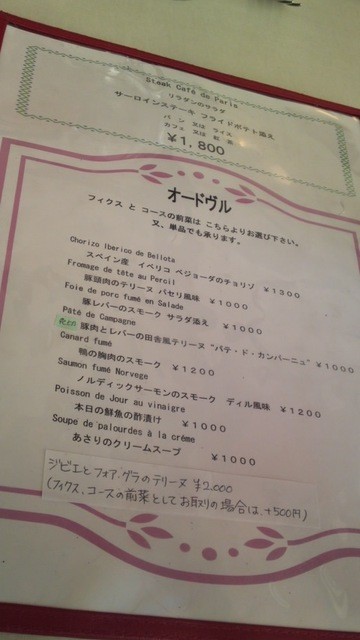 Steak Café de Paris
リラダンのサラダ
サーロインステーキ フライドポテト添え
パン 又は ライス
カフェ 又は 紅 茶
￥1,800
オードヴル
フィクス と コースの前菜は こちらよりお選び下さい。
又、単品でも承ります。
Chorizo Iberico de Bellota
スペイン産 イベリコ ベジョーダのチョリソ ￥1300
Fromage de tête au Percil
豚頭肉のテリーヌ パセリ風味 ￥1000
Foie de porc fumé en Salade
豚レバーのスモーク サラダ添え ￥1000
Pâté de Campagne
豚肉とレバーの田舎風テリーヌ "パテ・ド・カンパーニュ" ￥1000
Canard fumé
鴨の胸肉のスモーク ￥1200
Saumon fumé Norvege
ノルディックサーモンのスモーク ディル風味 ￥1200
Poisson de Jour au vinaigre
本日の鮮魚の酢漬け ￥1000
Soupe de palourdes à la crème
あさりのクリームスープ ￥1000
ジビエとフォア・グラのテリーヌ ¥2,000
(フィクス、コースの前菜としてお取りの場合は、+500円)